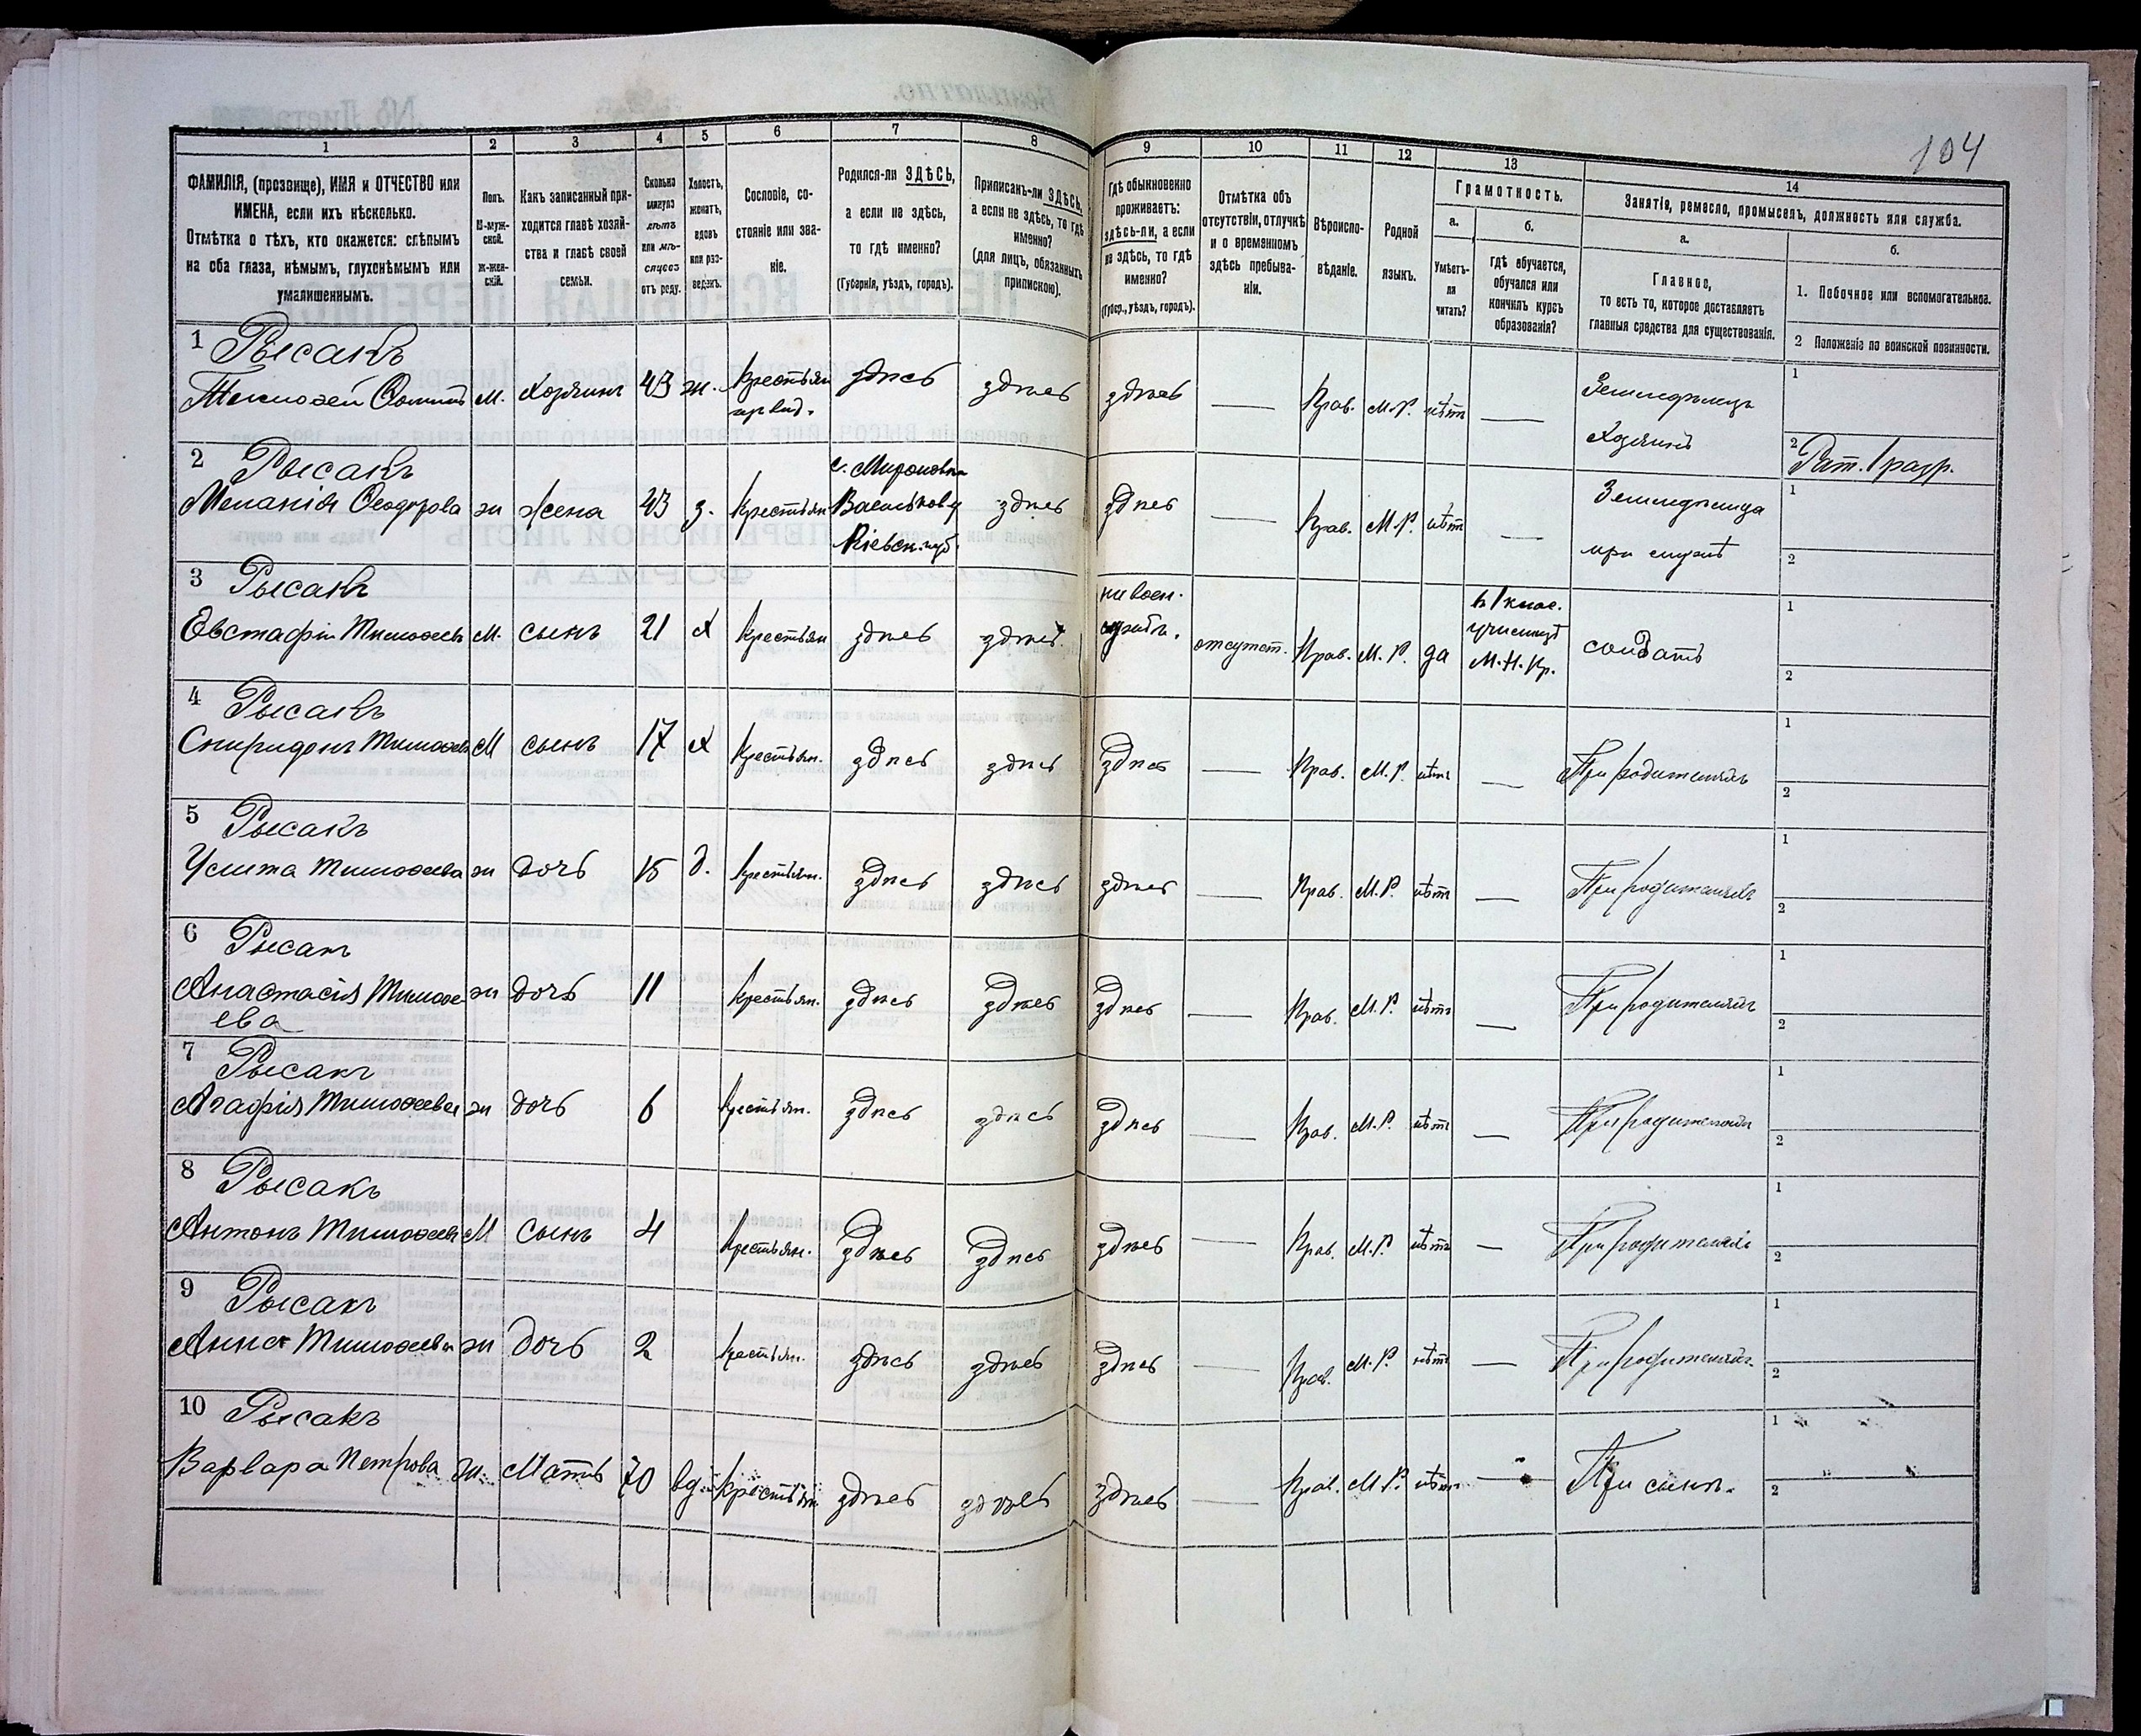 104
1 2 3 4 5 6 7 8 9 10 11 12 13 14
ФАМИЛІЯ, (прозвище), ИМЯ и ОТЧЕСТВО или
ИМЕНА, если ихъ нѣсколько.
Отмѣтка о тѣхъ, кто окажется: слѣпымъ
на оба глаза, нѣмымъ, глухонѣмымъ или
умалишеннымъ.
Полъ.
М-муж-
ской.
ж-жен-
скій.
Какъ записанный при-
ходится главѣ хозяй-
ства и главѣ своей
семьи.
Сколько
минуло
лѣтъ
или мѣ-
сяцевъ
отъ роду.
Холостъ,
женатъ,
вдовъ
или раз-
веденъ.
Сословіе, со-
стояніе или зва-
ніе.
Родился-ли ЗДѢСЬ,
а если не здѣсь,
то гдѣ именно?
(Губернія, уѣздъ, городъ).
Приписанъ-ли ЗДѢСЬ,
а если не здѣсь, то гдѣ
именно?
(для лицъ, обязанныхъ
припискою).
Гдѣ обыкновенно
проживаетъ:
здѣсь-ли, а если
не здѣсь, то гдѣ
именно?
(Губер., уѣздъ, городъ).
Отмѣтка объ
отсутствіи, отлучкѣ
и о временномъ
здѣсь пребыва-
ніи.
Вѣроиспо-
вѣданіе.
Родной
языкъ.
Грамотность.
а.
Умѣетъ-
ли
читать?
б.
гдѣ обучается,
обучался или
кончилъ курсъ
образованія?
Занятіе, ремесло, промыселъ, должность или служба.
а.
Главное,
то есть то, которое доставляетъ
главныя средства для существованія.
б.
1. Побочное или вспомогательное.
2 Положеніе по воинской повинности.
1 Рысакъ
Тимоѳей м. Хозяинъ 43 ж. Крестьян здѣсь здѣсь здѣсь — Прав. М.Р. нѣтъ — Земледѣлецъ
Хозяинъ
1
2 Рат. 1 разр.
2 Рысакъ
Меланія Ѳеодорова ж Жена 43 з. Крестьян с. Мироновка
Васильков у
Кіевск. губ. здѣсь здѣсь — Прав. М.Р. нѣтъ — Земледѣлица
при мужѣ
1
2
3 Рысакъ
Евстафій Тимоѳеевъ м. сынъ 21 х Крестьян здѣсь здѣсь на воен.
службѣ. отсутст. Прав. М.Р. да в 1 клас.
училищѣ
М.Н.Пр. солдатъ
1
2
4 Рысакъ
Спиридонъ Тимоѳеевъ М сынъ 17 х Крестьян. здѣсь здѣсь здѣсь — Прав. М.Р. нѣтъ — При родителяхъ
1
2
5 Рысакъ
Тимоѳеева ж дочь 15 д. Крестьян. здѣсь здѣсь здѣсь — Прав. М.Р. нѣтъ — При родителяхъ
1
2
6 Рысакъ
Анастасія Тимоѳе
ева ж дочь 11 Крестьян. здѣсь здѣсь здѣсь — Прав. М.Р. нѣтъ — При родителяхъ
1
2
7 Рысакъ
Агафія Тимоѳеева ж дочь 6 Крестьян. здѣсь здѣсь здѣсь — Прав. М.Р. нѣтъ — При родителяхъ
1
2
8 Рысакъ
Антонъ Тимоѳеевъ М сынъ 4 Крестьян. здѣсь здѣсь здѣсь — Прав. М.Р. нѣтъ — При родителяхъ
1
2
9 Рысакъ
Анна Тимоѳеева ж дочь 2 Крестьян. здѣсь здѣсь здѣсь — Прав. М.Р. нѣтъ — При родителяхъ
1
2
10 Рысакъ
Варвара Петрова ж. Мать 70 вд. Крестьян здѣсь здѣсь здѣсь — Прав. М.Р. нѣтъ — При сынѣ.
1
2